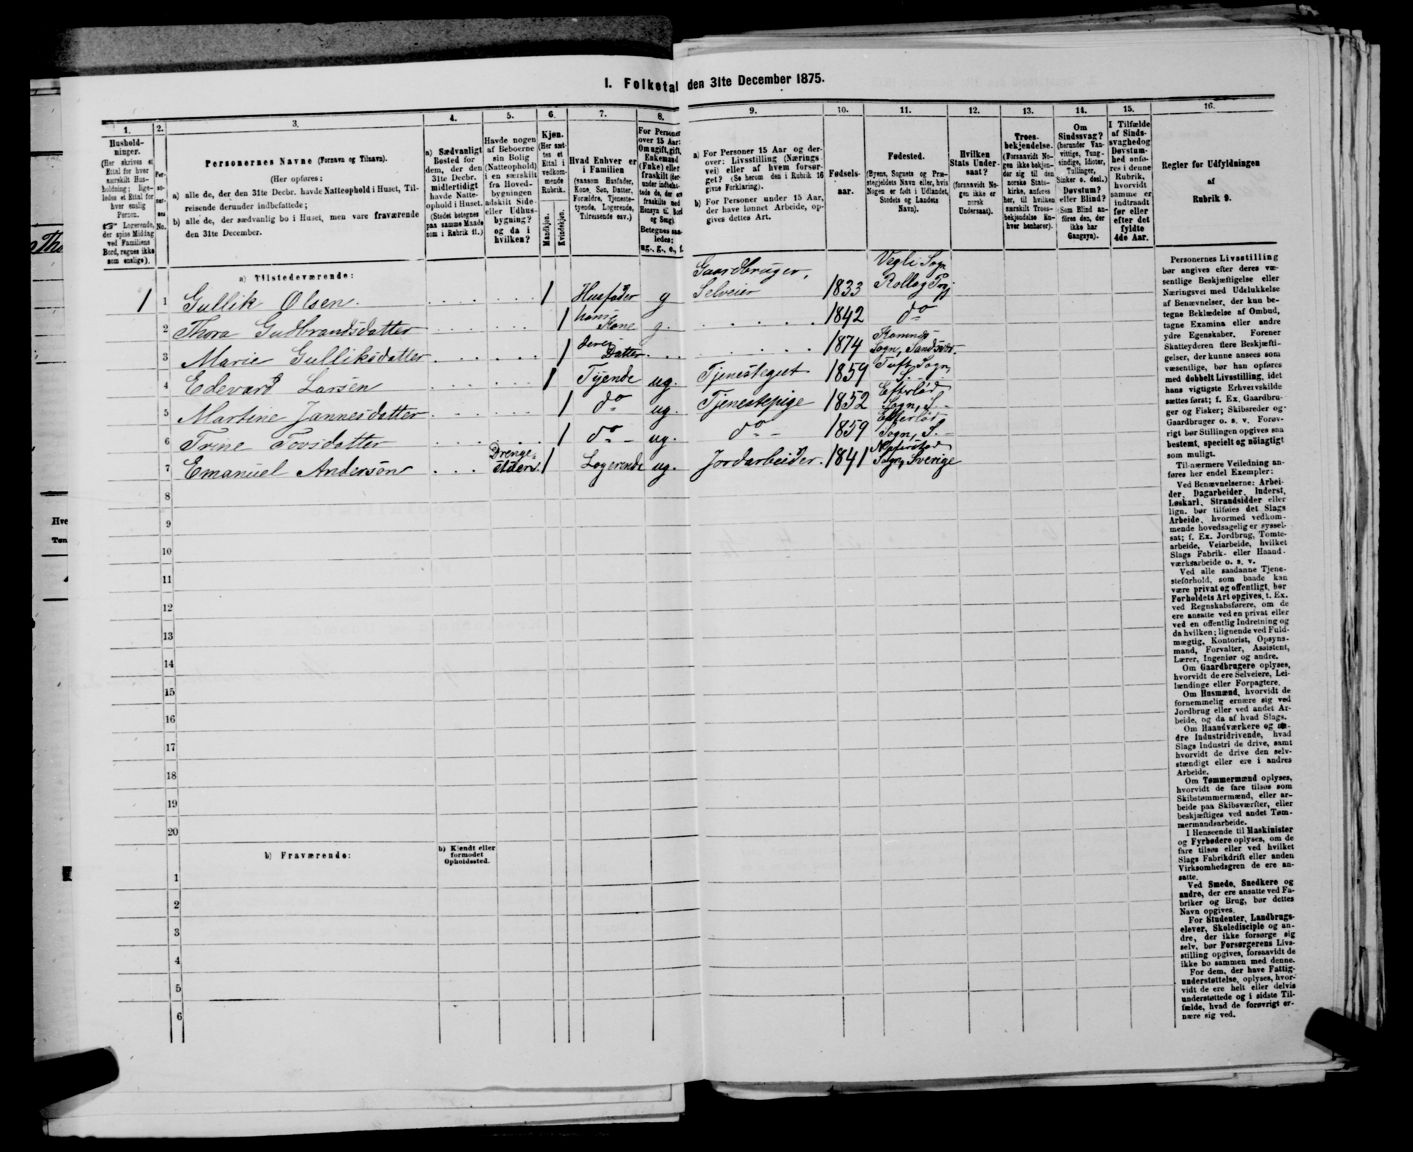 I. Folketal den 31te December 1875.
1. 2. 3. 4. 5. 6. 7. 8. 9. 10. 11. 12. 13. 14. 15. 16.
Hushold-
ninger.
(Her skrives et
Ettal for hver
særskilt Hus-
holdning; lige-
ledes et Ettal for
hver enslig
Person.
☞ Logerende,
der spise Middag
ved Familiens
Bord, regnes ikke
som enslige).
Per-
so-
ner-
nes
No.
Personernes Navne (Fornavn og Tilnavn).
(Her opføres:
a) alle de, der den 31te Decbr. havde Natteophold i Huset, Til-
reisende derunder indbefattede;
b) alle de, der sædvanlig bo i Huset, men vare fraværende
den 31te December.
a) Sædvanligt
Bosted for
dem, der den
31te Decbr.
midlertidigt
havde Natte-
ophold i Huset.
(Stedet betegnes
paa samme Maade
som i Rubrik 11.)
Havde nogen
af Beboerne
sin Bolig
(Natteophold)
i en særskilt
fra Hoved-
bygningen
adskilt Side-
eller Udhus-
bygning?
og da i
hvilken?
Kjøn.
(Her sæt-
tes et
Ettal i
vedkom-
mende
Rubrik.
Mandkjøn.
Kvindekjøn.
Hvad Enhver er
i Familien
(saasom Husfader,
Kone, Søn, Datter,
Forældre, Tjeneste-
tyende, Logerende,
Tilreisende osv.)
For Personer
over 15 Aar:
Om ugift, gift,
Enkemand
(Enke) eller
fraskilt
Betegnes saa-
ledes:
ug., g., e., f.
a) For Personer 15 Aar og der-
over: Livsstilling (Nærings-
vei) eller af hvem forsør-
get? (Se herom den i Rubrik 16
givne Forklaring).
b) For Personer under 15 Aar,
der have lønnet Arbeide, op-
gives dettes Art.
Fødsels-
aar.
Fødested.
(Byens, Sognets og Præ-
stegjeldets Navn eller, hvis
Nogen er født i Udlandet,
Stedets og Landets
Navn).
Hvilken
Stats Under-
saat?
(forsaavidt No-
gen ikke er
norsk
Undersaat).
Troes-
bekjendelse.
(Forsaavidt No-
gen ikke bekjen-
der sig til den
norske Stats-
kirke, anføres
her, til hvilken
særskilt Troes-
bekjendelse En-
hver henhører).
Om
Sindssvag?
(herunder Van-
vittige, Tung-
sindige, Idioter,
Tullinger,
Sinker o. desl.)
Døvstum?
eller Blind?
(Som Blind an-
føres den, der
ikke har
Gangsyn).
I Tilfælde
af Sinds-
svaghed og
Døvstum-
hed anfø-
res i denne
Rubrik,
hvorvidt
samme er
indtraadt
før eller
efter det
fyldte
4de Aar.
Regler for Udfyldningen
af
Rubrik 9.
a) Tilstedeværende:
1 1 Gullik Olsen. 1 Husfader g Gaardbruger, Selveier 1833 Vegli Sogn Rollag Prgj.
2 Thora Gudbrandsdatter 1 hans Kone g. 1842 do
3 Marie Gulliksdatter 1 deres Datter 1874 Komnæs Sogn, Sandsvær.
4 Edevart Larsen 1 Tyende ug. Tjenestegut 1859 Tuft Sogn, S.
5 Martine Jannesdatter 1 do ug. Tjenestepige 1852 Efterlød Sogn, S.
6 Trine Tovsdatter 1 do ug. do 1859 Efterlød Sogn, S.
7 Emanuel Anderson Drenge- 1 Logerende ug. Jordarbeider. 1841 Sogn, Sverige
8
9
10
11
12
13
14
15
16
17
18
19
20
b) Fraværende:
b) Kjendt eller
formodet
Opholdssted.
1
2
3
4
5
6
Personernes Livsstilling
bør angives efter deres væ-
sentlige Beskjæftigelse eller
Næringsvei med Udelukkelse
af Benævnelser, der kun be-
tegne Beklædelse af Ombud,
tagne Examina eller andre
ydre Egenskaber. Forener
Skatteyderen flere Beskjæfti-
gelser, der kunne ansees som
væsentlige, bør han opføres
med dobbelt Livsstilling, idet
hans vigtigste Erhvervskilde
sættes først; f. Ex. Gaardbru-
ger og Fisker; Skibsreder og
Gaardbruger o. s. v. Forøv-
rigt bør Stillingen opgives saa
bestemt, specielt og nöiagtigt
som muligt.
Til nærmere Veiledning an-
føres her endel Exempler:
Ved Benævnelserne: Arbei-
der, Dagarbeider, Inderst,
Løskarl, Strandsidder eller
lign. bør tilføies det Slags
Arbeide, hvormed vedkom-
mende hovedsagelig er syssel-
sat; f. Ex. Jordbrug, Tomte-
arbeide, Veiarbeide, hvilket
Slags Fabrik- eller Haand-
værksarbeide o. s. v.
Ved alle saadanne Tjene-
steforhold, som baade kan
være privat og offentligt, bør
Forholdets Art opgives, f. Ex.
ved Regnskabsførere, om de
ere ansatte ved en privat eller
ved en offentlig Indretning og
da hvilken; lignende ved Fuld-
mægtig, Kontorist, Opsyns-
mand, Forvalter, Assistent,
Lærer, Ingeniør og andre.
Om Gaardbrugere oplyses,
hvorvidt de ere Selveiere, Lei-
lændinge eller Forpagtere.
Om Husmænd, hvorvidt de
fornemmelig ernære sig ved
Jordbrug eller ved andet Ar-
beide, og da af hvad Slags.
Om Haandværkere og an-
dre Industridrivende, hvad
Slags Industri de drive, samt
hvorvidt de drive den selv-
stændigt eller ere i andres
Arbeide.
Om Tømmermænd oplyses,
hvorvidt de fare tilsøs som
Skibstømmermænd, eller ar-
beide paa Skibsværfter, eller
beskjæftiges ved andet Tøm-
mermandsarbeide.
I Henseende til Maskinister
og Fyrbødere oplyses, om de
fare tilsøs eller ved hvilket
Slags Fabrikdrift eller anden
Virksomhedsgren de ere an-
satte.
Ved Smede, Snedkere og
andre, der ere ansatte ved Fa-
briker og Brug, bør dettes
Navn opgives.
For Studenter, Landbrugs-
elever, Skoledisciple og an-
dre, der ikke forsørge sig
selv, bør Forsørgerens Livs-
stilling opgives, forsaavidt de
ikke bo sammen med denne.
For dem, der have Fattig-
understøttelse, oplyses, hvor-
vidt de ere helt eller delvis
understøttede og i sidste Til-
fælde, hvad de forøvrigt er-
nære sig ved.